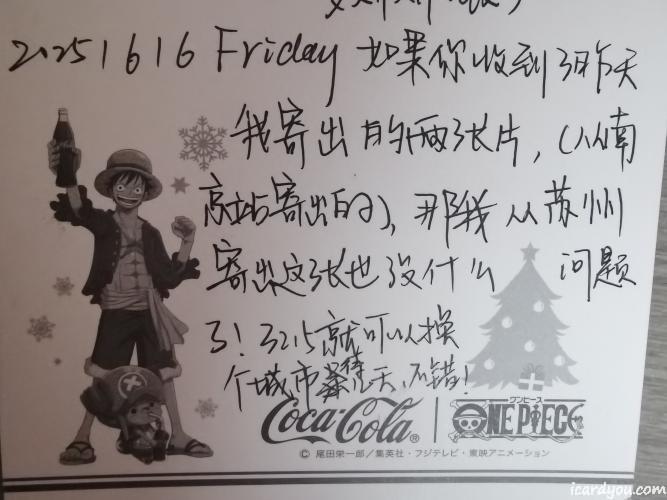 2025/6/6 Friday 如果你收到了昨天
我寄出的两张片，(从南
京站寄出的)，那我从苏州
寄出这张也没什么 问题
了！32.5就可以换
个城市待一天，不错！
Coca-Cola®
ワンピース
ONE PIECE
© 尾田栄一郎／集英社・フジテレビ・東映アニメーション
icardyou.com